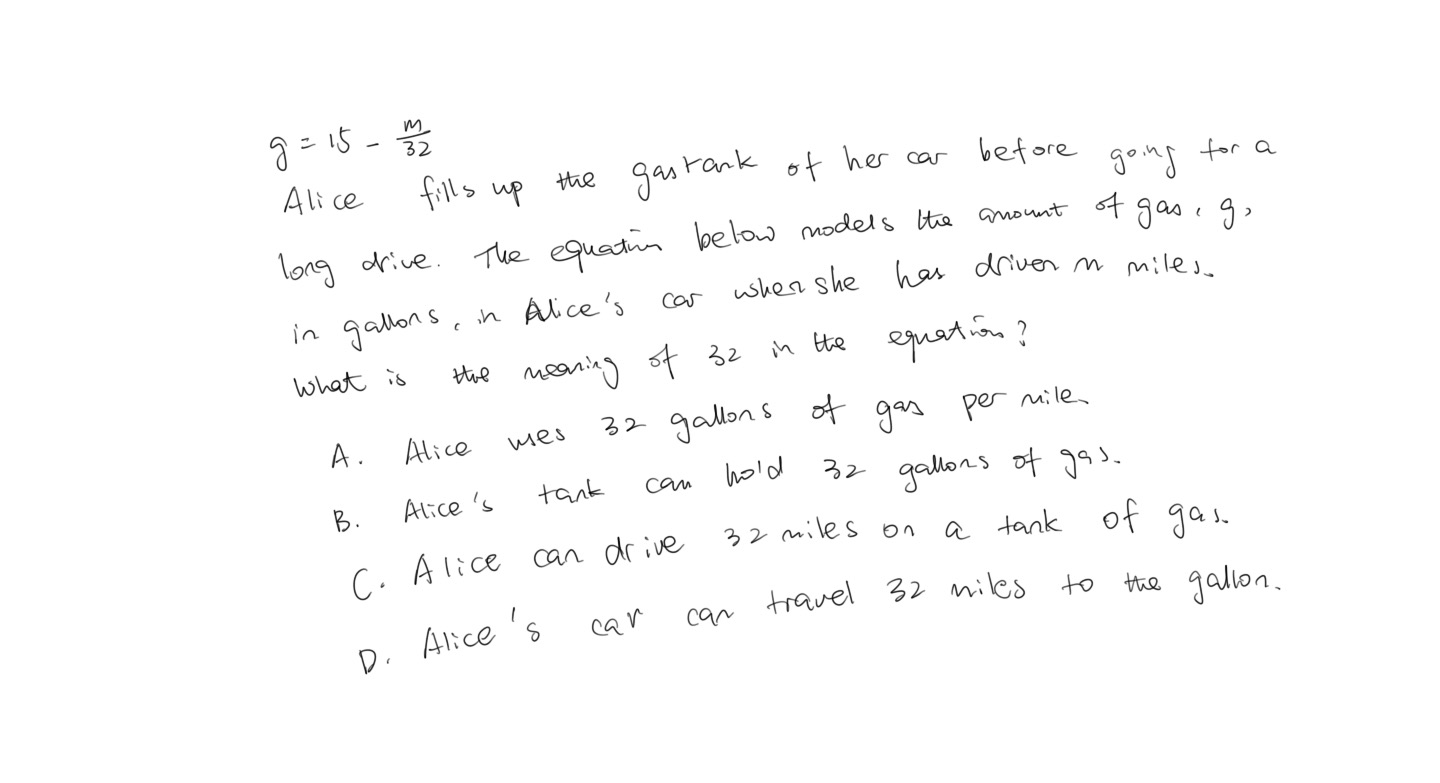 g = 15 - m/32
Alice fills up the gas tank of her car before going for a
long drive. The equation below models the amount of gas, g,
in gallons, in Alice's car when she has driven m miles.
What is the meaning of 32 in the equation?
A. Alice uses 32 gallons of gas per mile.
B. Alice's tank can hold 32 gallons of gas.
C. Alice can drive 32 miles on a tank of gas.
D. Alice's car can travel 32 miles to the gallon.